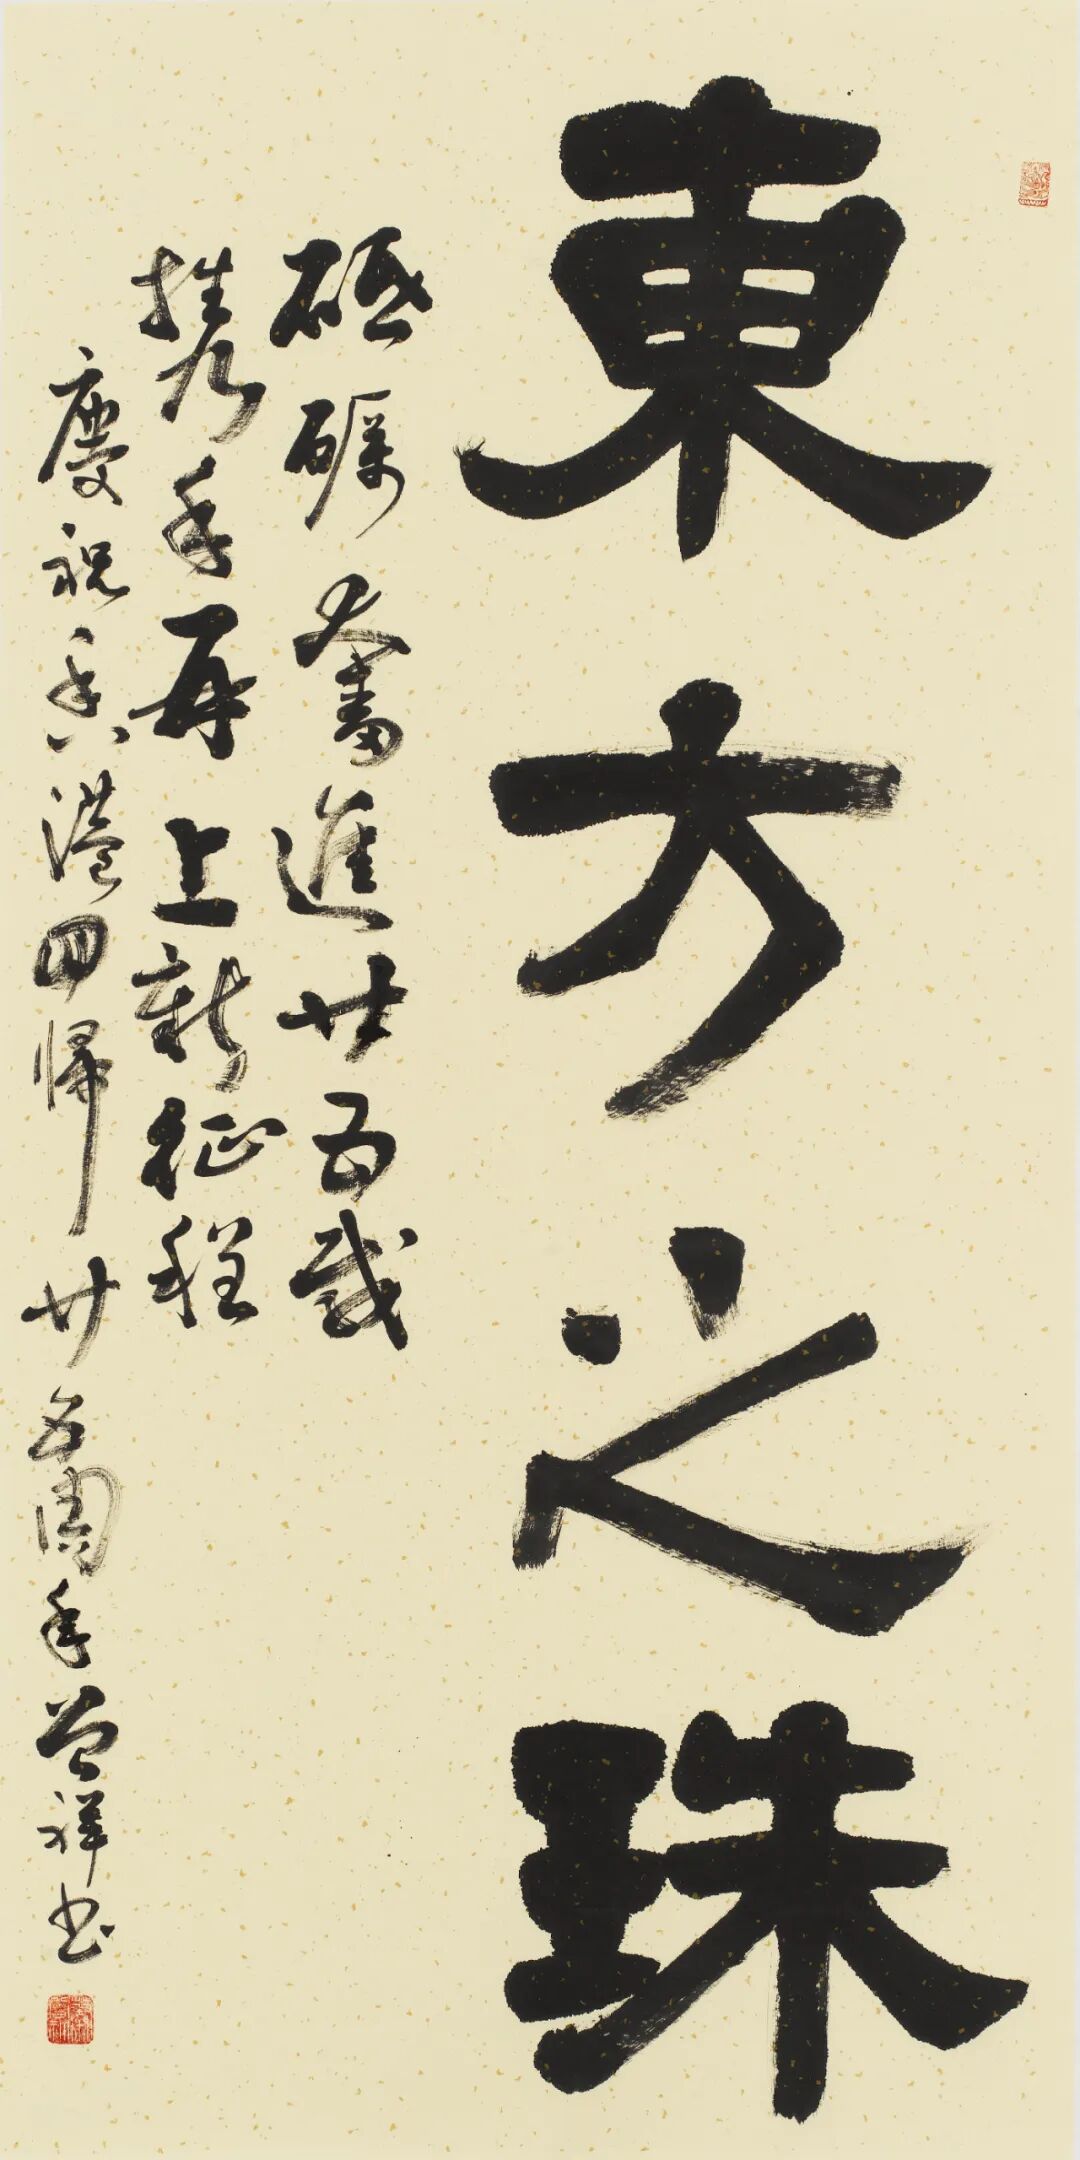 東方之珠
砥礪奮進廿五載
携手再上新征程
慶祝香港回歸廿五周年曾祥书